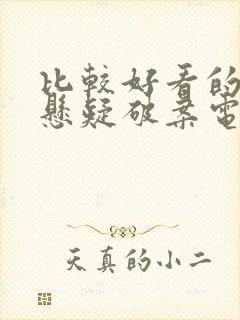 比較好看的
懸疑破案電
天真的小二